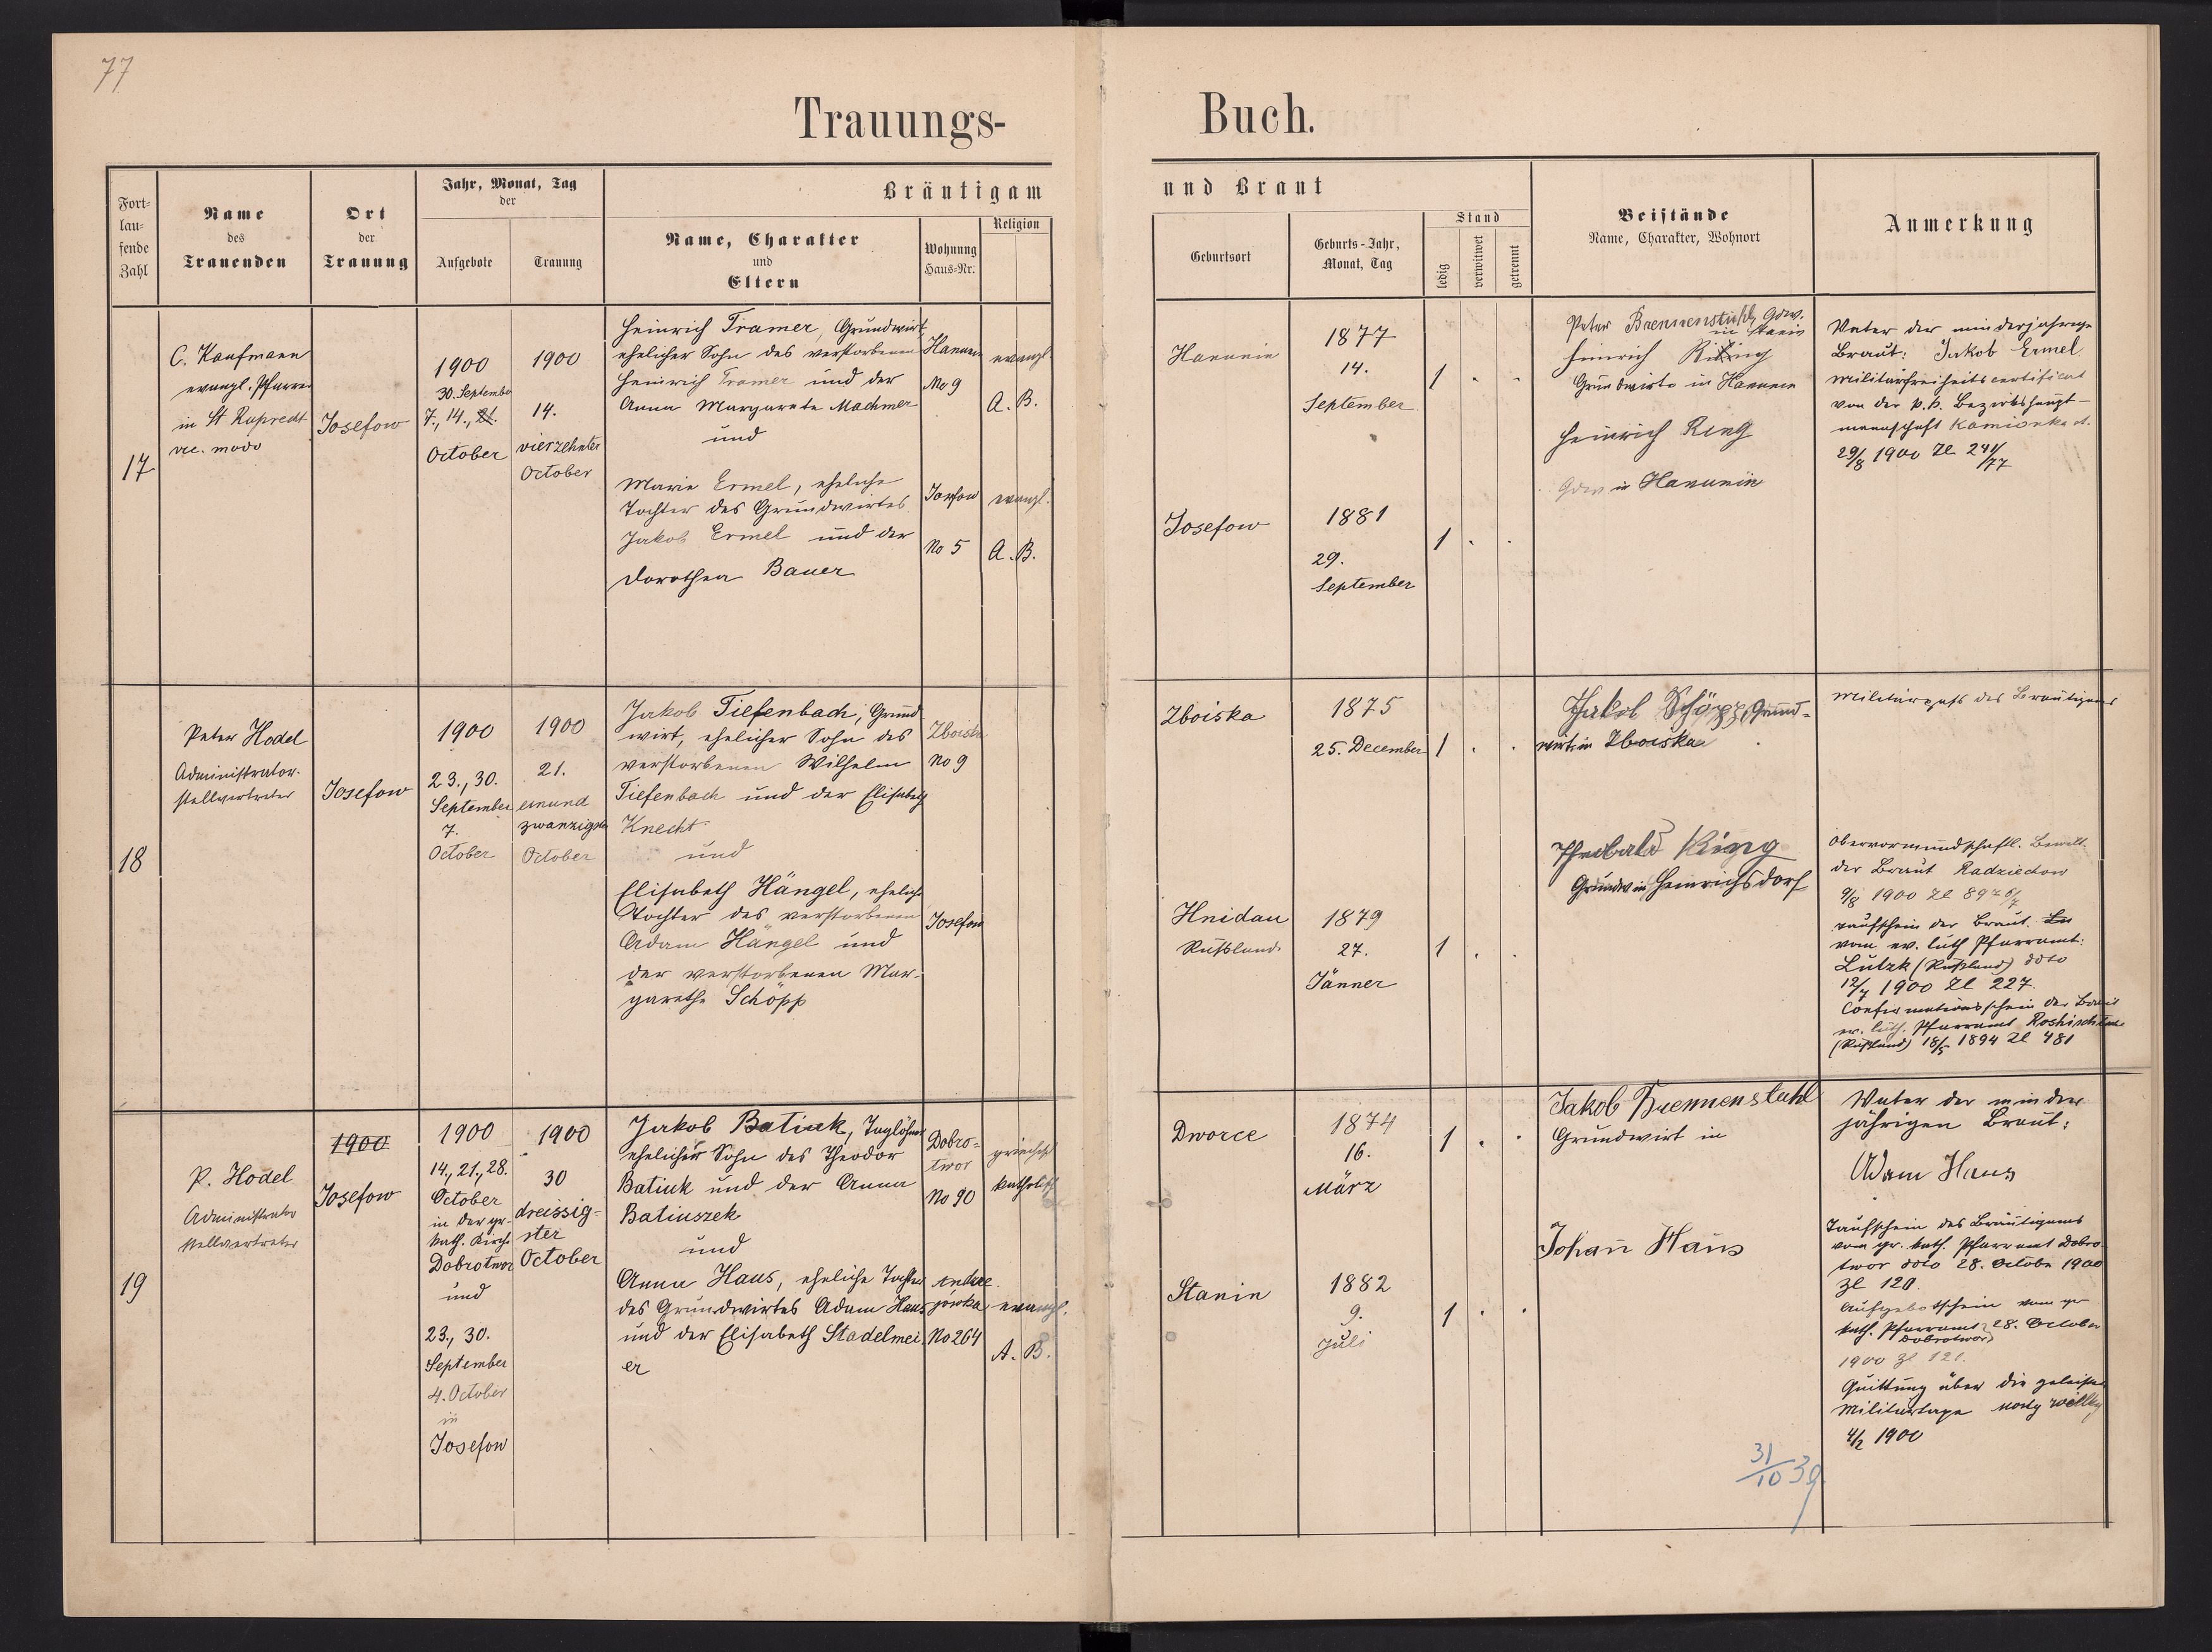 77
Trauungs-
Buch.
Fort-
lau-
fende
Zahl
Name
des
Trauenden
Ort
der
Trauung
Jahr, Monat, Tag
der
Aufgebote
Trauung
Bräutigam
Name, Charakter
und
Eltern
Wohnung
Haus-Nr.
Religion
und Braut
Geburtsort
Geburts-Jahr,
Monat, Tag
Stand
ledig
verwitwet
getrennt
Beistände
Name, Charakter, Wohnort
Anmerkung
17
C. Kaufmann
evangl. Pfarrer
in St Ruprecht
Josefow
1900
30. September
7., 14., 21.
October
1900
14.
vierzehnter
October
Heinrich Tramer, Grundwirt
ehelicher Sohn des verstorbenen
Heinrich Tramer und der
Anna Margareta Machmer
und
Marie Ermel, eheliche
Tochter des Grundwirtes
Jakob Ermel und der
Dorothea Bauer
Hanunin
No 9
evangl.
A. B.
Josefow
No 5
evangl.
A. B.
Hanunin
1877
14.
September
1
Josefow
1881
29.
September
1
Peter Brennenstuhl, Gdw.
in Stanin
Heinrich
Grundwirte in Hanunin
Heinrich Ring
Gdw in Hanunin
Vater der minderjährigen
Braut: Jakob Ermel
Militärfreiheitscertificat
von der k.k. Bezirkshaupt-
mannschaft Kamionka st.
29/8 1900 Zl 241/77
18
Peter Hodel
Administrator-
stellvertreter
Josefow
1900
23., 30.
September
7.
October
1900
21.
einund
zwanzigster
October
Jakob Tiefenbach, Grund
wirt, ehelicher Sohn des
verstorbenen Wilhelm
Tiefenbach und der Elisabeth
Knecht
und
Elisabeth Hängel, eheliche
Tochter des verstorbenen
Adam Hängel und
der verstorbenen Mar-
garethe Schöpp
Zboiska
No 9
Josefow
Zboiska
1875
25. December
1
Hnidau
Russland.
1879
27.
Jänner
1
Jakob Schöpp, Grund-
wirt in Zboiska
Theobald King
Grundw in Heinrichsdorf
Militärpass des Bräutigams
Obervormundschaftl. Bewill.
der Braut Radziechow
9/8 1900 Zl
Taufschein der Braut.
vom ev. luth Pfarramt:
Lutzk (Russland) ddto
12/7 1900 Zl 227.
Confirmationsschein der Braut
ev. luth. Pfarramt Roshischtsche
(Russland) 18/5 1894 Zl 481
19
P. Hodel
Administrator
stellvertreter
1900
Josefow
1900
14., 21., 28.
October
in der gr.
kath. Kirche
Dobrotwor
und
23., 30.
September
4. October
in
Josefow
1900
30
dreissig-
ster
October
Jakob Batiuk, Taglöhner
ehelicher Sohn des Theodor
Batiuk und der Anna
Batiuszek
und
Anna Haus, eheliche Tochter
des Grundwirtes Adam Haus
und der Elisabeth Stadelmei
er
Dobro-
twor
No 90
griechisch
katholisch
Andre
jówka
No 264
evangl.
A. B.
Dworce
1874
16.
März
1
Stanin
1882
9.
Juli
1
Jakob Brennenstuhl
Grundwirt in
Johann Haus
31/10 39
Vater der minder
jährigen Braut:
Adam Haus
Taufschein des Bräutigams
vom gr. kath. Pfarramt Dobro
twor ddto 28. October 1900
Zl 120.
Aufgebotschein vom gr
kath. Pfarramt 28. October
Dobrotwor
1900 Zl 121.
Quittung über die geleistete
Militärtaxe
4/2 1900